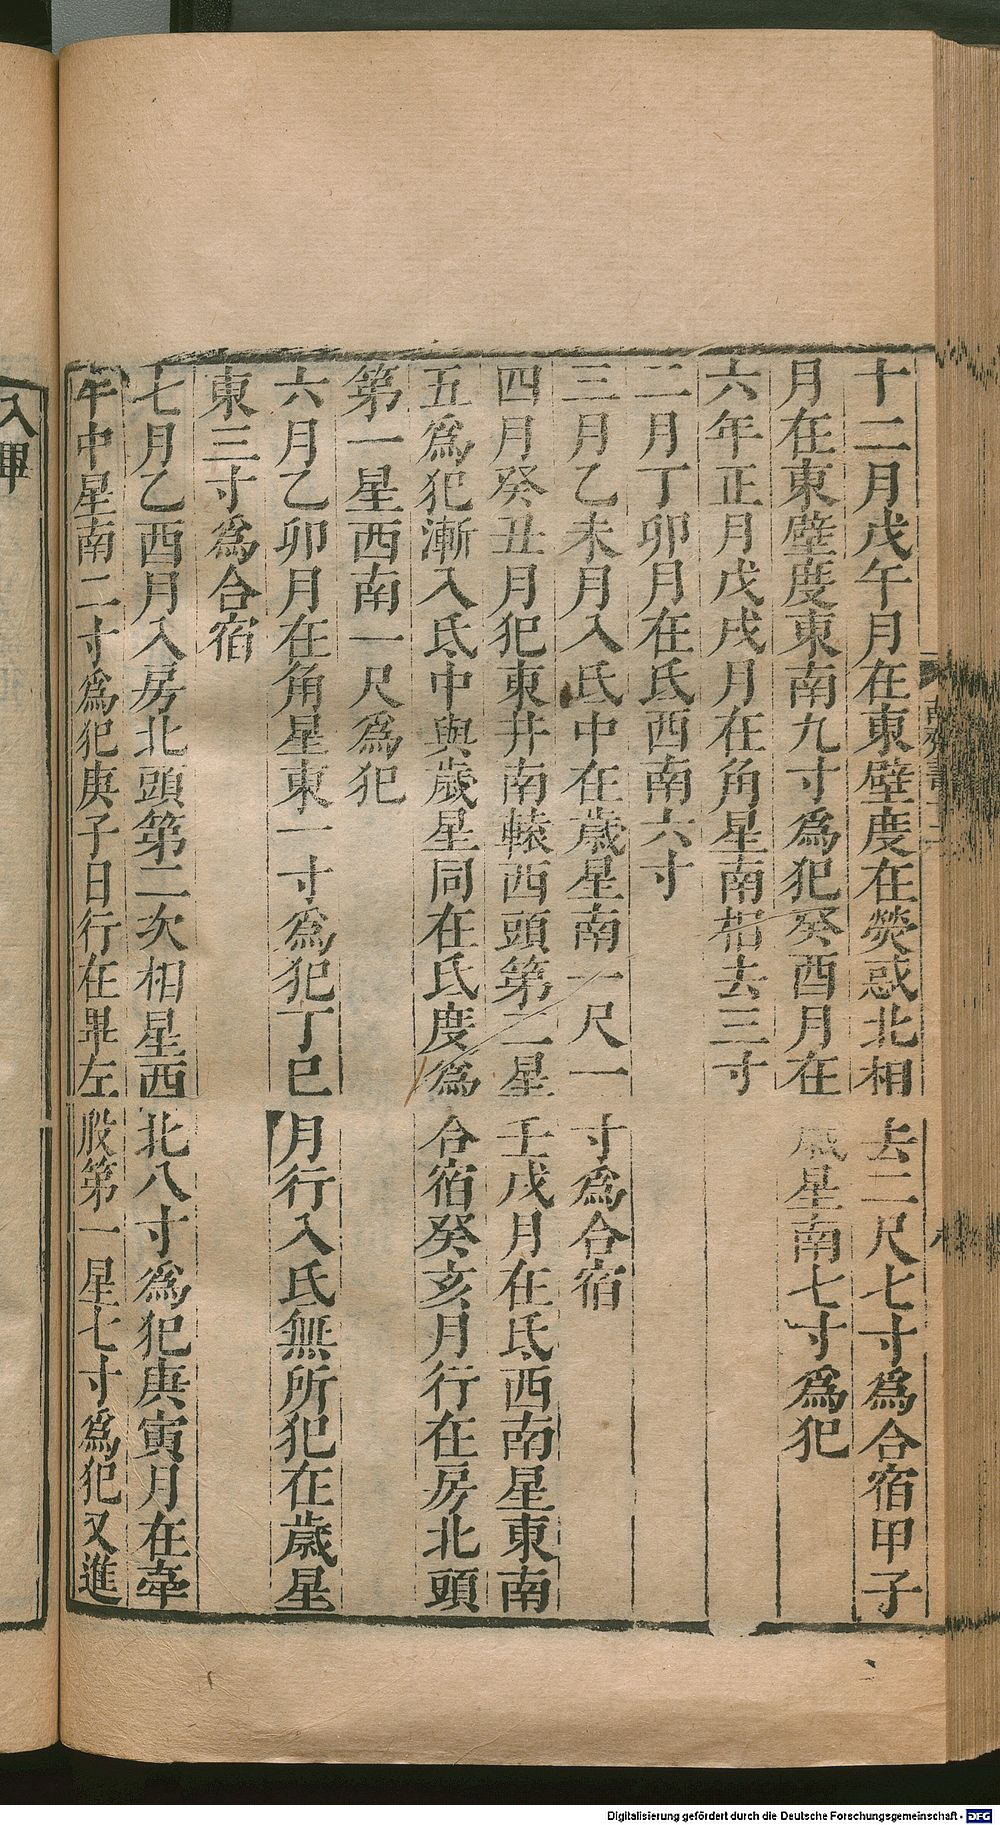 十二月戊午月在東壁度在熒惑北相去二尺七寸爲合宿甲子
月在東壁度東南九寸爲犯癸酉月在歲星南七寸爲犯
六年正月戊戌月在角星南相去三寸
二月丁卯月在氐西南六寸
三月乙未月入氐中在歲星南一尺一寸爲合宿
四月癸丑月犯東井南轅西頭第二星壬戌月在氐西南星東南
五爲犯漸入氐中與歲星同在氐度爲合宿癸亥月行在房北頭
第一星西南一尺爲犯
六月乙卯月在角星東一寸爲犯丁巳月行入氐無所犯在歲星
東三寸爲合宿
七月乙酉月入房北頭第二次相星西北八寸爲犯庚寅月在牽
牛中星南二寸爲犯庚子日行在畢左股第一星七寸爲犯又進
入畢
Digitalisierung gefördert durch die Deutsche Forschungsgemeinschaft - DFG